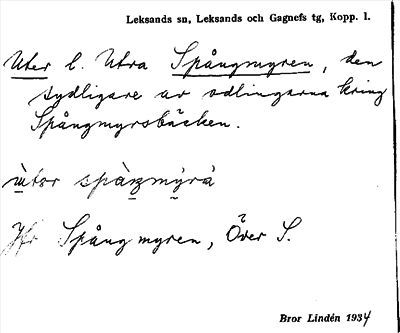 Leksands sn, Leksands och Gagnefs tg, Kopp. l.
Uter l. Utra Spångmyren, den
sydligare av odlingarna kring
Spångmyrsbäcken.
Jfr Spångmyren, Över S.
Bror Lindén 1934